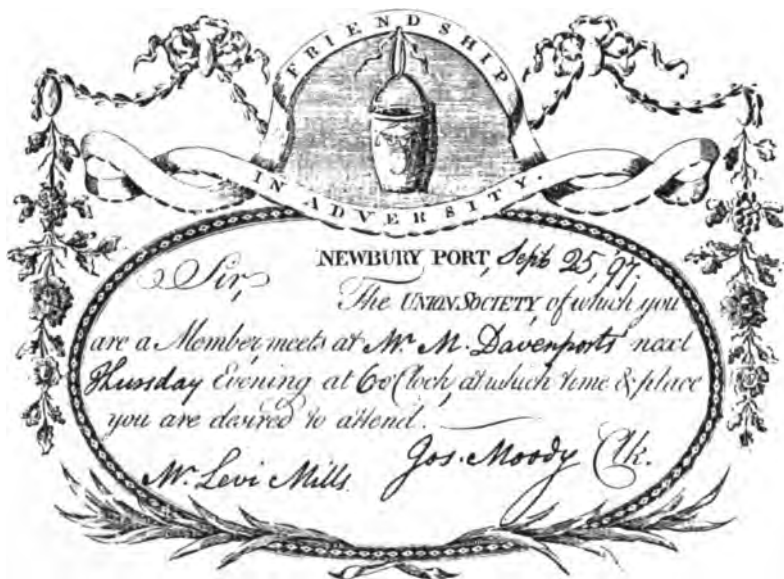 FRIENDSHIP
IN ADVERSITY.
NEWBURY PORT, Sept 25, 97.
Sir,
The UNION SOCIETY, of which you
are a Member, meets at Mr. M. Davenports next
Thursday Evening at 6 o'Clock, at which time & place
you are desired to attend.
Jos. Moody Clk.
Mr. Levi Mills